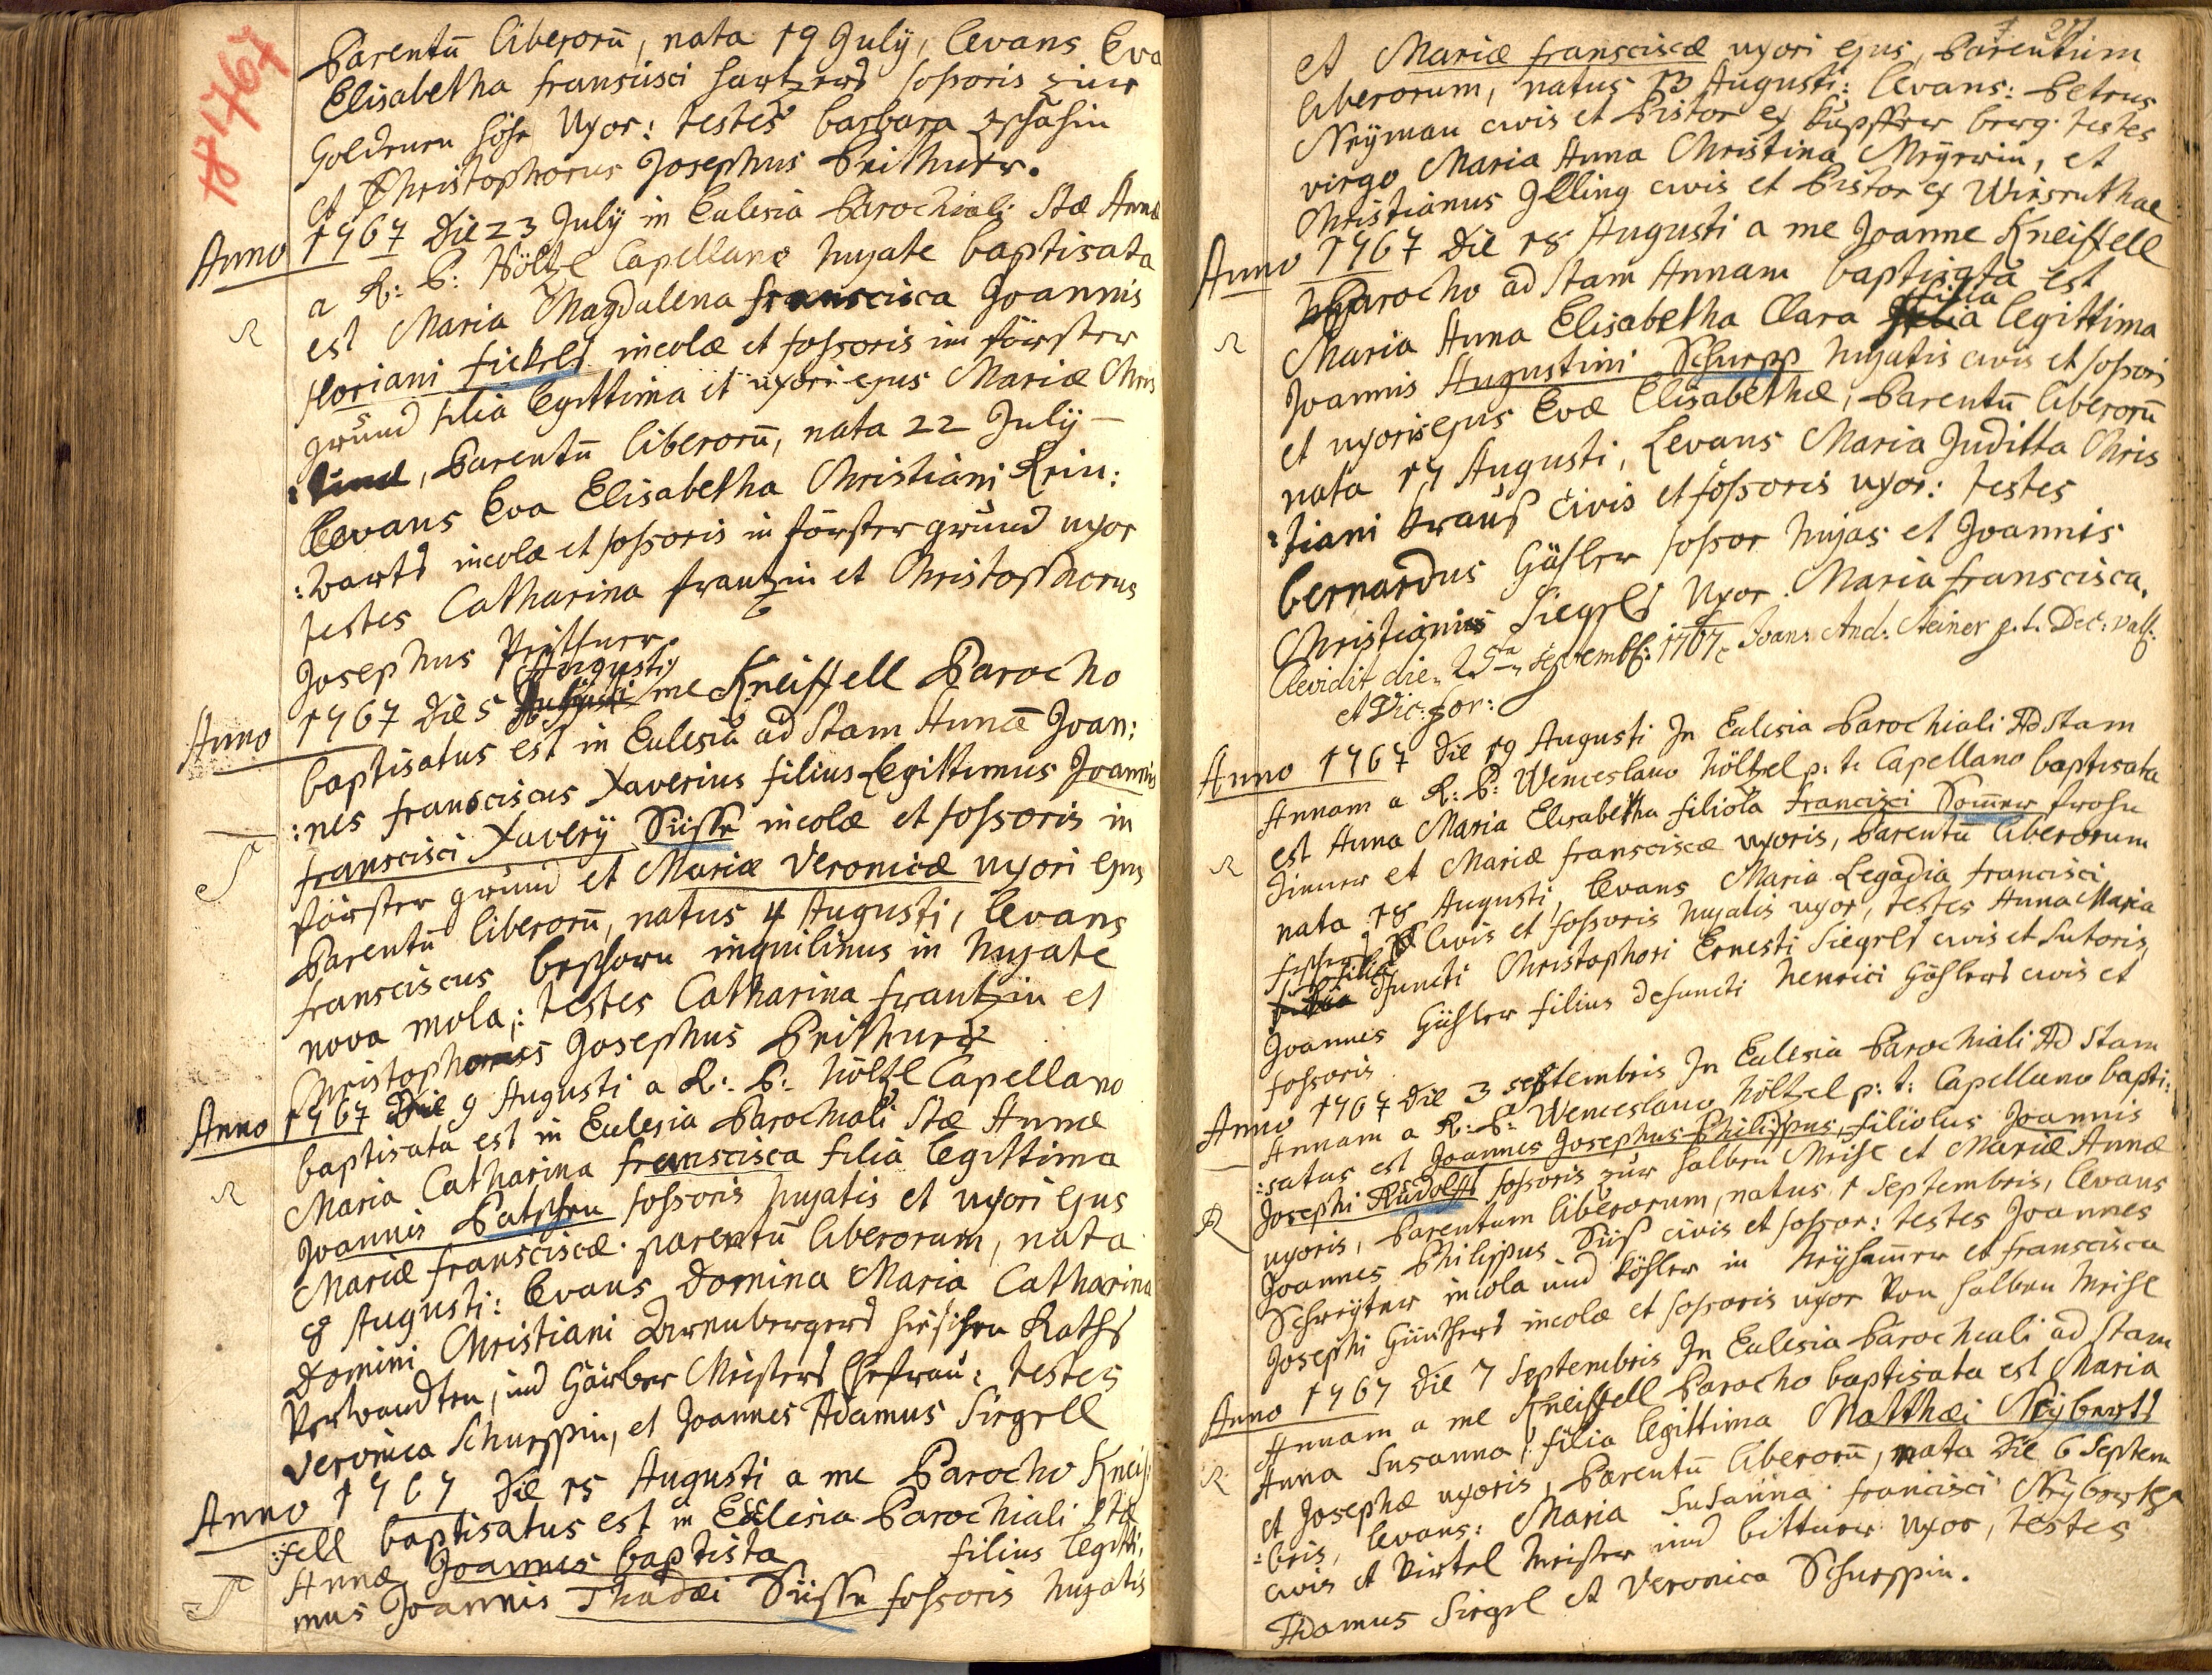 1767
Parentū liberorū, nata 19 Julÿ, levans Eva
Elisabetha francisci fossoris zur
Goldenen Höhe Uxor: testes barbara
et Christophorus Josephus Peithner.
Anno 1767 Die 23 Julÿ in Eclesia Parochiali Stæ Annæ
a R: P: Höltzl Capellano hujate baptisata
est Maria Magdalena franscisca Joannis
floriani fickels incolæ et fossoris im förster
grund filia legittima et uxori ejus Mariæ Chris
:tinæ, Parentū liberorū, nata 22 Julÿ —
levans Eva Elisabetha Christiani Rein:
:warts incolæ et fossoris in förster grund uxor
testes Catharina frantzin et Christophorus
Josephus Peithner.
Augusti
Anno 1767 Die 5 me Kneissell Parocho
baptisatus est in Eclesia ad Stam Annā Joan:
:nes fransciscus Xaverius filius Legittimus Joannis
franscisci Xaverÿ Süsse incolæ et fossoris in
förster grund et Mariæ Veronicæ uxori ejus
Parentū liberorū, natus 4 Augusti, levans
fransciscus inquilinus in hujate
nova mola: testes Catharina frantzin et
Christophorus Josephus Peithner
Anno 1767 Die 9 Augusti a R: P: Höltzl Capellano
baptisata est in Eclesia Parochiali Stæ Annæ
Maria Catharina franscisca filia legittima
Joannis Patschen fossoris hujatis et uxori ejus
Mariæ fransciscæ parentū liberorum, nata
8 Augusti: levans Domina Maria Catharina
Domini Christiani Dirnbergers hiesichen Raths
Verwandten, und Gärber Meisters Ehefrau: testes
Veronica Schuppin, et Joannes Adamus Siegell
Anno 1767 Die 15 Augusti a me Parocho Kneis:
:sell baptisatus est in Eclesia Parochiali Stæ
Annæ Joannes baptista filius legitti:
mus Joannis Thadæi Süsse fossoris hujatis
et Mariæ fransciscæ uxori ejus, Parentum
liberorum, natus 13 Augusti: levans: Petrus
Neÿman civis et Pistor ex Kupffer berg. testes
virgo Maria Anna Christina Meÿerin, et
Christianus Illing civis et Pistor ex Wiesenthal
Anno 1767 Die 18 Augusti a me Joanne Kneissell
Parocho ad Stam Annam baptisata est
Maria Anna Elisabetha Clara filia legittima
Joannis Augustini Schupp hujatis civis et fossoris
et uxoris ejus Evæ Elisabethæ, Parentū liberorū
nata 17 Augusti, Levans Maria Juditta Chris
:tiani Krauß civis et fossoris uxor: testes
bernardus Gähler fossor hujas et Joannis
Christianis Siegels Uxor Maria franscisca.
Revidit die 25ta Septembr: 1767 Joan: And: Steiner p.t. Dec: vall:
et Vic: for:
Anno 1767 Die 19 Augusti In Eclesia Parochiali Ad Stam
Annam a R: P: Wenceslauo Höltzel p: t: Capellano baptisata
est Anna Maria Elisabetha filiola francisci Som̄er frohn
et Mariæ fransciscæ uxoris, Parentū liberorum
nata 18 Augusti, levans Maria Legadia francisci
civis et fossoris hujatis uxor, testes Anna Maria
filia defuncti Christophori Ernesti Siegels civis et Sutoris,
Joannes Gähler filius defuncti Henrici Gählers civis et
fossoris
Anno 1767 Die 3 septembris In Eclesia Parochiali Ad Stam
Annam a R: P: Wenceslauo Höltzel p: t: Capellano bapti:
:satus est Joannes Josephus Philippus, filiolus Joannis
Josephi Rudolffs fossoris zur halben Meile et Mariæ Annæ
uxoris, Parentum liberorum, natus 1 Septembris, levans
Joannes Philippus Süß civis et fossor: testes Joannes
Schreÿter incola und Köhler in et franscisca
Josephi Günthers incolæ et fossoris uxor Von halben Meile
Anno 1767 Die 7 Septembris In Eclesia Parochiali ad Stam
Annam a me Kneissell Parocho baptisata est Maria
Anna Susanna, filia legittima Matthæi Neÿberts
et Josephæ uxoris, Parentū liberorū, nata Die 6 Septem
:bris, levans: Maria Susanna francisci
civis et Virtel Meister und bittner uxor, testes
Adamus Siegel et Veronica Schuppin.